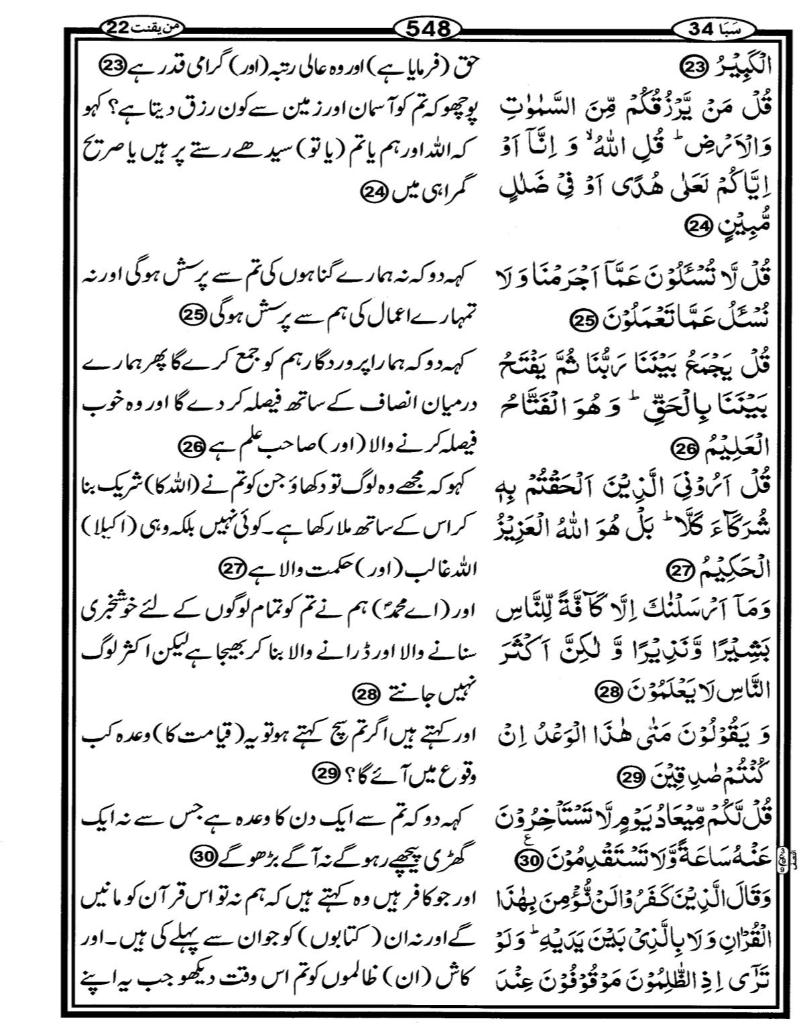 سَبَا 34
548
من یقنت 22
الْكَبِيْرُ 23
قُلْ مَنْ يَّرْزُقُكُمْ مِّنَ السَّمٰوٰتِ
وَالْاَرْضِ ؕ قُلِ اللّٰهُ ۙ وَ اِنَّاۤ اَوْ
اِيَّاكُمْ لَعَلٰى هُدًى اَوْ فِيْ ضَلٰلٍ
مُّبِيْنٍ 24
قُلْ لَّا تُسْـَٔلُوْنَ عَمَّاۤ اَجْرَمْنَا وَ لَا
نُسْـَٔلُ عَمَّا تَعْمَلُوْنَ 25
قُلْ يَجْمَعُ بَيْنَنَا رَبُّنَا ثُمَّ يَفْتَحُ
بَيْنَنَا بِالْحَقِّ ؕ وَ هُوَ الْفَتَّاحُ
الْعَلِيْمُ 26
قُلْ اَرُوْنِيَ الَّذِيْنَ اَلْحَقْتُمْ بِهٖ
شُرَكَآءَ كَلَّا ؕ بَلْ هُوَ اللّٰهُ الْعَزِيْزُ
الْحَكِيْمُ 27
وَمَاۤ اَرْسَلْنٰكَ اِلَّا كَآفَّةً لِّلنَّاسِ
بَشِيْرًا وَّنَذِيْرًا وَّ لٰكِنَّ اَكْثَرَ
النَّاسِ لَا يَعْلَمُوْنَ 28
وَ يَقُوْلُوْنَ مَتٰى هٰذَا الْوَعْدُ اِنْ
كُنْتُمْ صٰدِقِيْنَ 29
قُلْ لَّكُمْ مِّيْعَادُ يَوْمٍ لَّا تَسْتَاْخِرُوْنَ
عَنْهُ سَاعَةً وَّلَا تَسْتَقْدِمُوْنَ 30 ع
وَقَالَ الَّذِيْنَ كَفَرُوْا لَنْ نُّؤْمِنَ بِهٰذَا
الْقُرْاٰنِ وَ لَا بِالَّذِيْ بَيْنَ يَدَيْهِ ؕ وَ لَوْ
تَرٰۤى اِذِ الظّٰلِمُوْنَ مَوْقُوْفُوْنَ عِنْدَ
حق (فرمایا ہے) اور وہ عالی رتبہ (اور) گرامی قدر ہے 23
پوچھو کہ تم کو آسمان اور زمین سے کون رزق دیتا ہے؟ کہو
کہ اللہ اور ہم یا تم (یا تو) سیدھے رستے پر ہیں یا صریح
گمراہی میں 24
کہہ دو کہ نہ ہمارے گناہوں کی تم سے پرسش ہوگی اور نہ
تمہارے اعمال کی ہم سے پرسش ہوگی 25
کہہ دو کہ ہمارا پروردگار ہم کو جمع کرے گا پھر ہمارے
درمیان انصاف کے ساتھ فیصلہ کر دے گا اور وہ خوب
فیصلہ کرنے والا (اور) صاحب علم ہے 26
کہو کہ مجھے وہ لوگ تو دکھاؤ جن کو تم نے (اللہ کا) شریک بنا
کر اس کے ساتھ ملا رکھا ہے۔ کوئی نہیں بلکہ وہی (اکیلا)
اللہ غالب (اور) حکمت والا ہے 27
اور (اے محمدؐ) ہم نے تم کو تمام لوگوں کے لئے خوشخبری
سنانے والا اور ڈرانے والا بنا کر بھیجا ہے لیکن اکثر لوگ
نہیں جانتے 28
اور کہتے ہیں اگر تم سچ کہتے ہو تو یہ (قیامت کا) وعدہ کب
وقوع میں آئے گا؟ 29
کہہ دو کہ تم سے ایک دن کا وعدہ ہے جس سے نہ ایک
گھڑی پیچھے رہو گے نہ آگے بڑھو گے 30
اور جو کافر ہیں وہ کہتے ہیں کہ ہم نہ تو اس قرآن کو مانیں
گے اور نہ ان (کتابوں) کو جو ان سے پہلے کی ہیں۔ اور
کاش (ان) ظالموں کو تم اس وقت دیکھو جب یہ اپنے